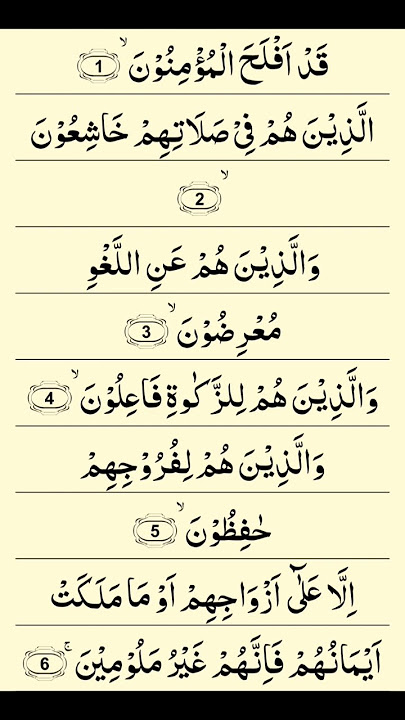 قَدْ اَفْلَحَ الْمُؤْمِنُوْنَ ۙ 1
الَّذِيْنَ هُمْ فِيْ صَلَاتِهِمْ خَاشِعُوْنَ
ۙ 2
وَالَّذِيْنَ هُمْ عَنِ اللَّغْوِ
مُعْرِضُوْنَ ۙ 3
وَالَّذِيْنَ هُمْ لِلزَّكٰوةِ فَاعِلُوْنَ ۙ 4
وَالَّذِيْنَ هُمْ لِفُرُوْجِهِمْ
حٰفِظُوْنَ ۙ 5
اِلَّا عَلٰٓى اَزْوَاجِهِمْ اَوْ مَا مَلَكَتْ
اَيْمَانُهُمْ فَاِنَّهُمْ غَيْرُ مَلُوْمِيْنَ ۚ 6